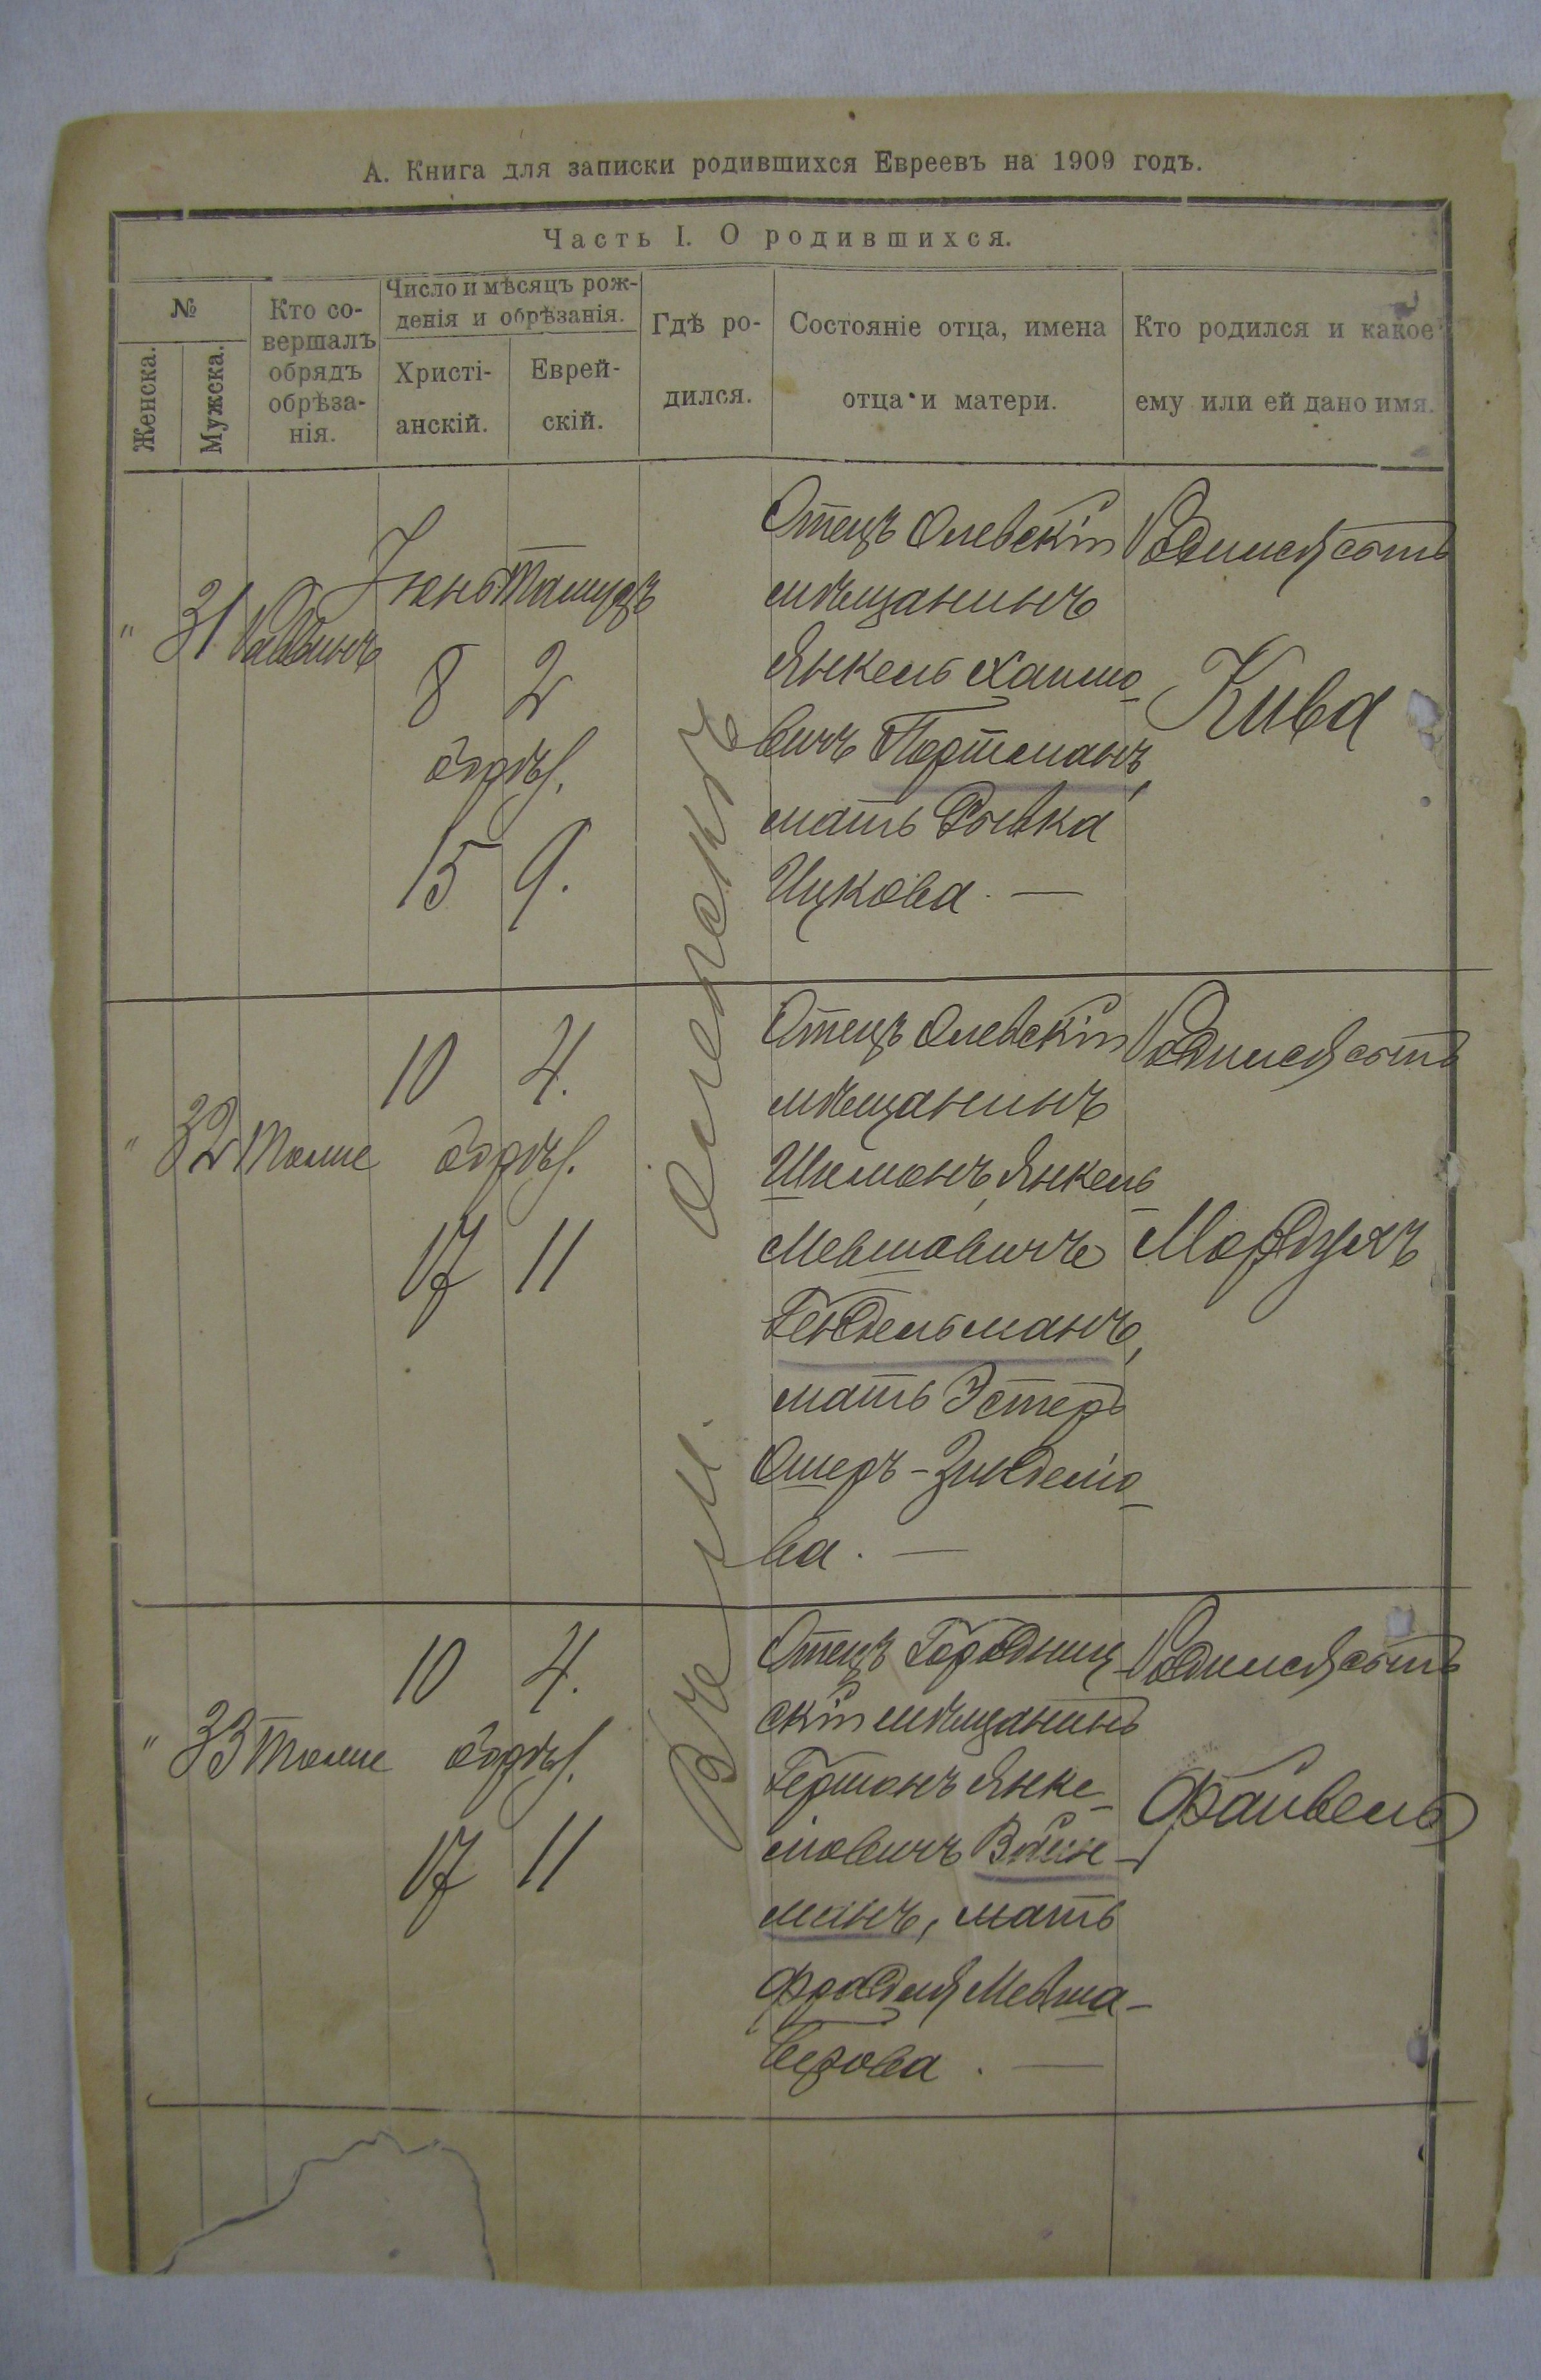 А. Книга для записки родившихся Евреевъ на 1909 годъ.
Часть I. О родившихся.
№
Женска.
Мужска.
Кто со-
вершалъ
обрядъ
обрѣза-
нія.
Число и мѣсяцъ рож-
денія и обрѣзанія.
Христі-
анскій.
Еврей-
скій.
Гдѣ ро-
дился.
Состояніе отца, имена
отца и матери.
Кто родился и какое
ему или ей дано имя.
" 31 Раввинъ
Іюнь Тамузъ
8 2
обрѣз.
15 9.
Въ м. Олевскъ
Отецъ Олевскій
мѣщанинъ
Янкель Хаимо-
вичъ Портманъ,
мать Ривка
Ицкова. —
Родился сынъ
Кива
" 32 Тоже
10 4.
обрѣз.
17 11
Отецъ Олевскій
мѣщанинъ
Шимонъ, Янкель
Мевшовичъ
Гендельманъ,
мать Эстеръ
Ошеръ-Зинделіо-
ва. —
Родился сынъ
Мордухъ
" 33 Тоже
10 4.
обрѣз.
17 11
Отецъ Городниц-
скій мѣщанинъ
Гершонъ Янке-
ліовичъ
манъ, мать
Фрадля Мевша-
Берова. —
Родился сынъ
Файвель